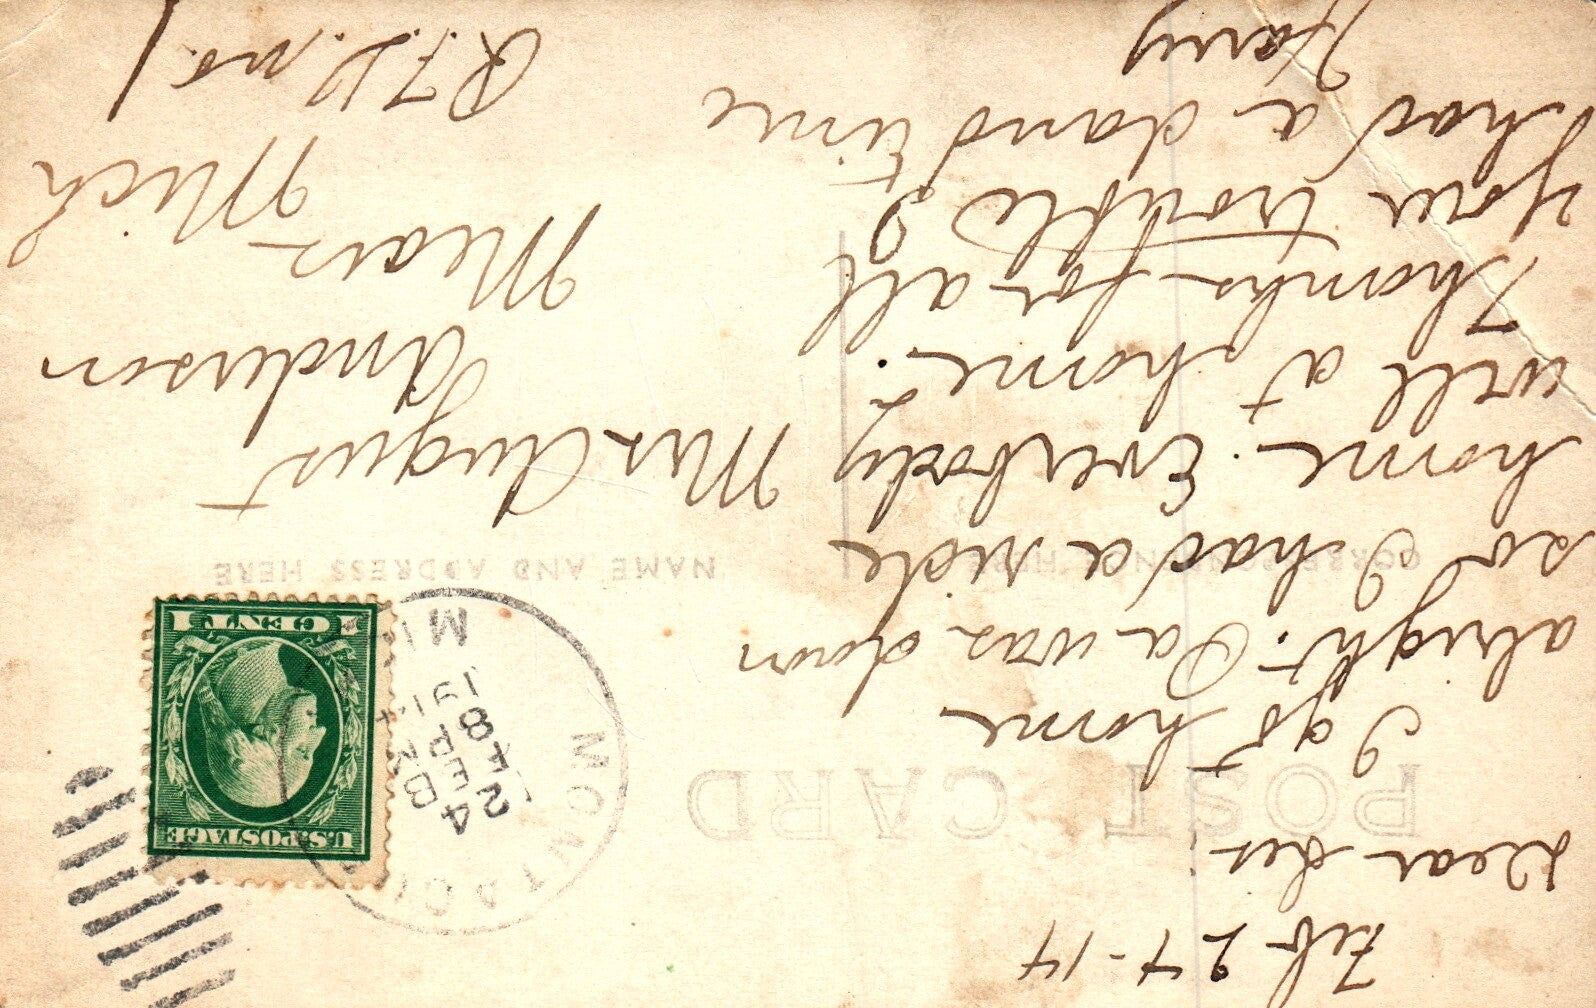 Feb 24-14
Dear Sis
POST CARD
I got home
alright. Pa was down
so I had a ride
home. Everbody
well at home.
Thanks for all
your trouble. I
had a dand time
Harry
CORRESPONDENCE HERE
NAME AND ADDRESS HERE
MONTAGUE
FEB
24
8 PM
1914
MICH
U.S. POSTAGE
1 CENT 1
Mrs August
Anderson
Mears
Mich
R.F.D. no. 1